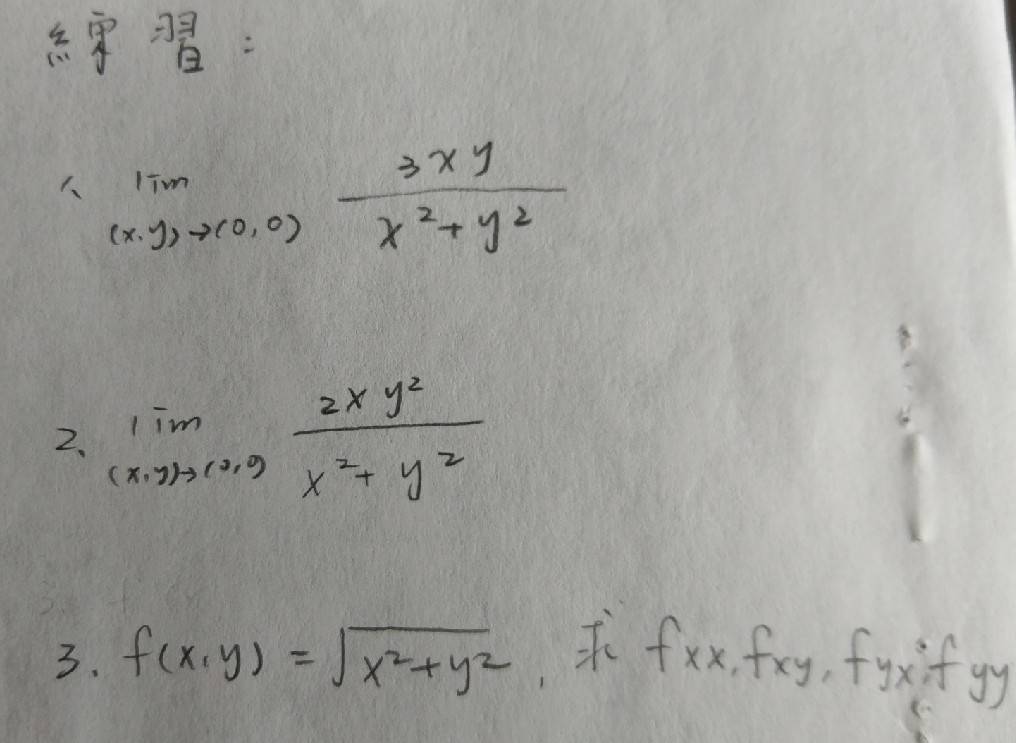 練習:
1、lim (x,y)→(0,0) 3xy / x²+y²
2、lim (x,y)→(0,0) 2xy² / x²+y²
3. f(x,y) = √x²+y², 求 fxx, fxy, fyx, fyy